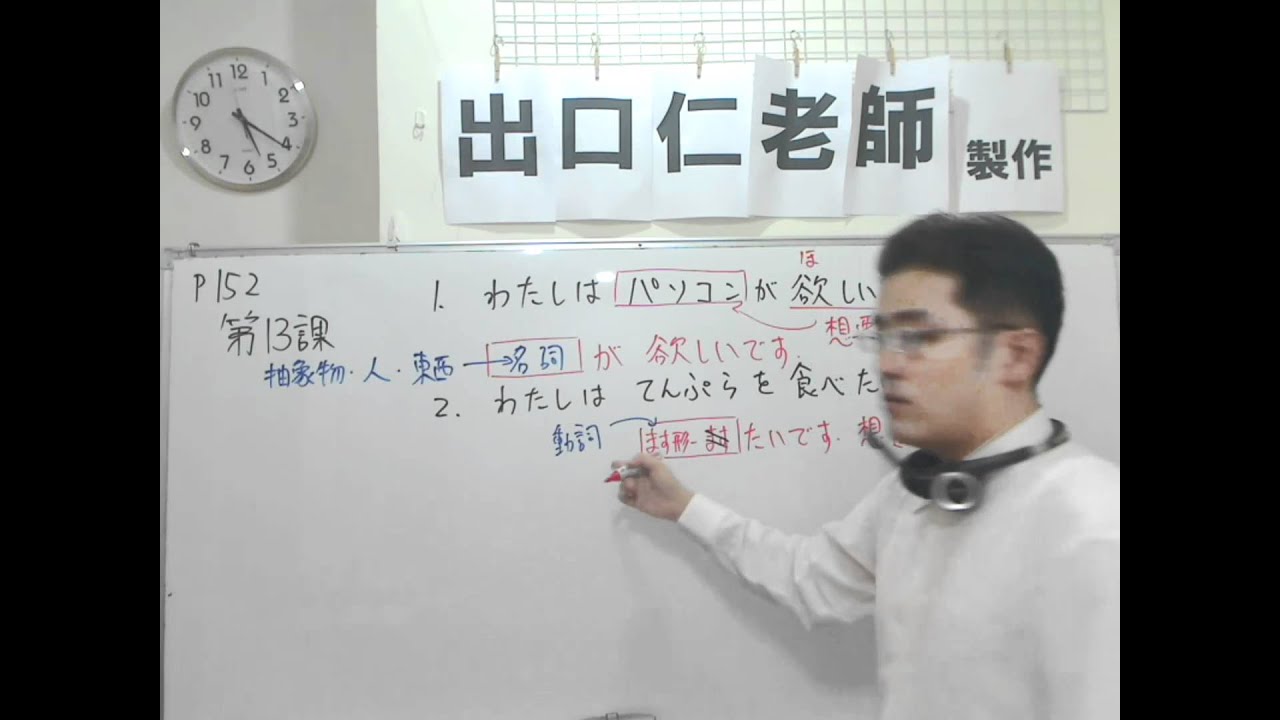 12 1 2 3 4 5 6 7 8 9 10 11
出口仁老師 製作
P152
第13課
ほ
1. わたしは パソコン が 欲しい
想要
抽象物・人・東西 → 名詞 が 欲しいです.
2. わたしは てんぷらを 食べた
動詞 ます形-ます たいです. 想